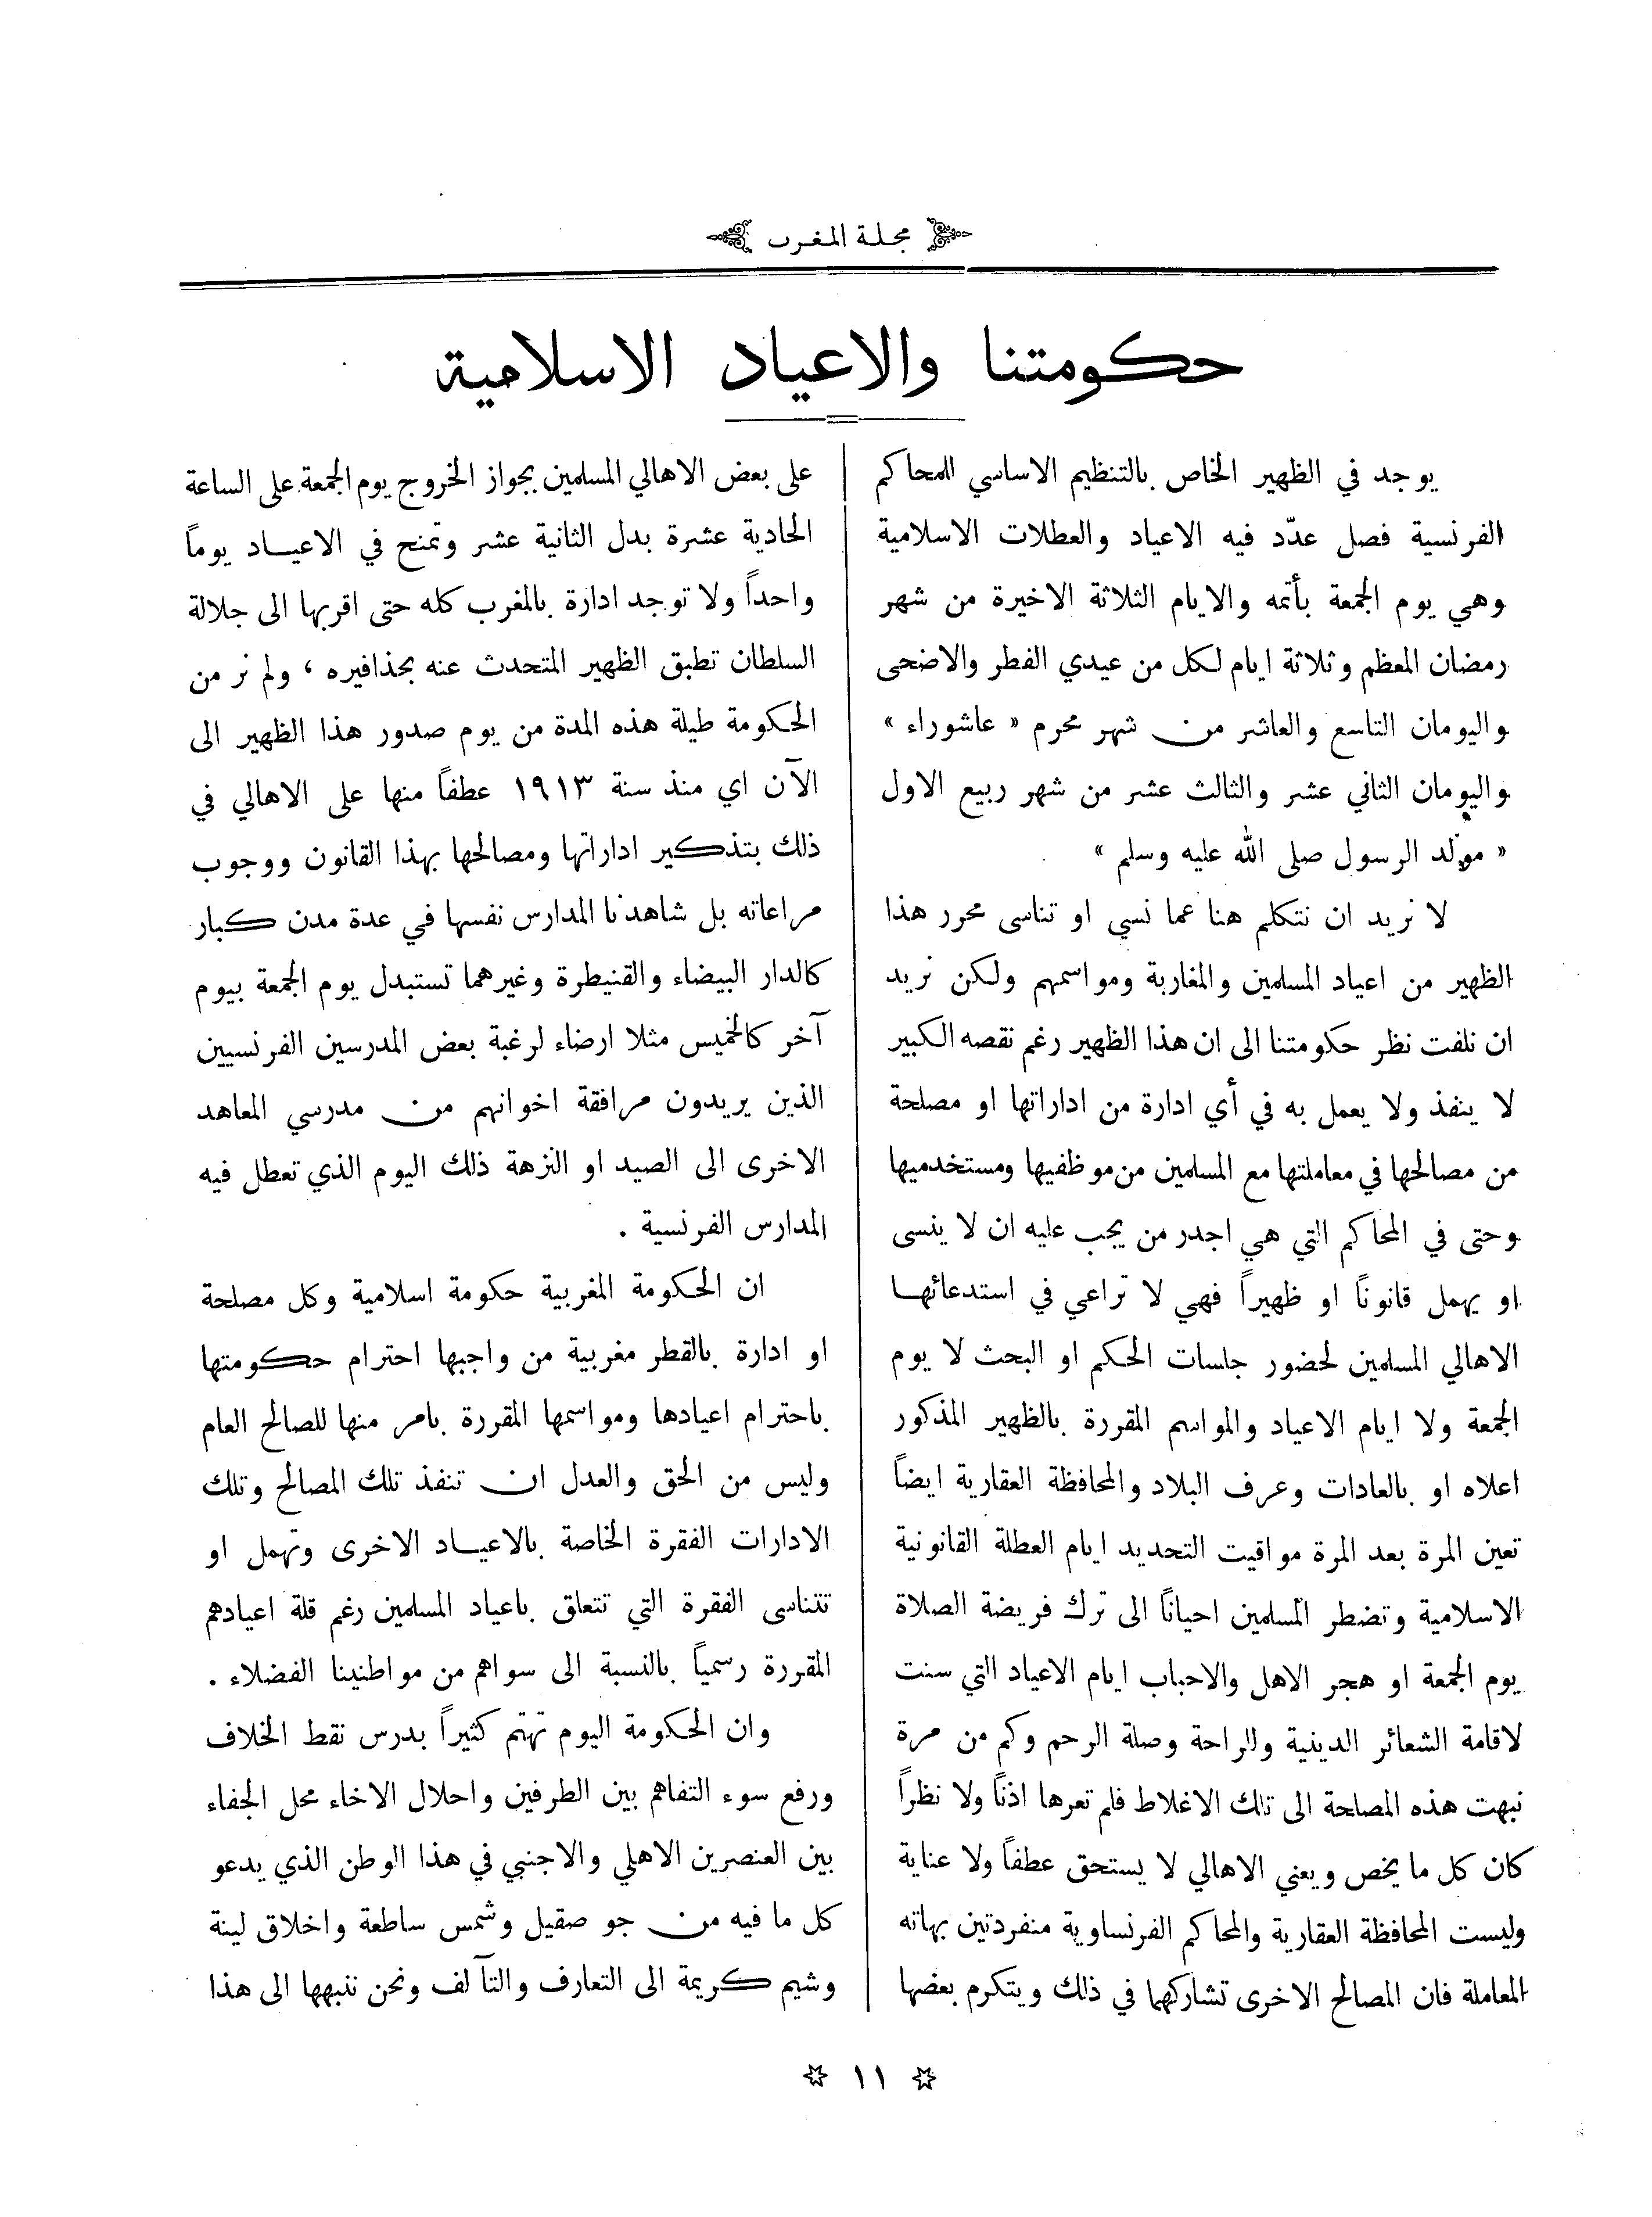 مجلة المغرب
حكومتنا والاعياد الاسلامية
يوجد في الظهير الخاص بالتنظيم الاساسي للمحاكم
الفرنسية فصل عدّد فيه الاعياد والعطلات الاسلامية
وهي يوم الجمعة بأتمه والايام الثلاثة الاخيرة من شهر
رمضان المعظم وثلاثة ايام لكل من عيدي الفطر والاضحى
واليومان التاسع والعاشر من شهر محرم « عاشوراء »
واليومان الثاني عشر والثالث عشر من شهر ربيع الاول
« مولد الرسول صلى الله عليه وسلم »
لا نريد ان نتكلم هنا عما نسي او تناسى محرر هذا
الظهير من اعياد المسلمين والمغاربة ومواسمهم ولكن نريد
ان نلفت نظر حكومتنا الى ان هذا الظهير رغم نقصه الكبير
لا ينفذ ولا يعمل به في أي ادارة من اداراتها او مصلحة
من مصالحها في معاملتها مع المسلمين من موظفيها ومستخدميها
وحتى في المحاكم التي هي اجدر من يجب عليه ان لا ينسى
او يهمل قانونًا او ظهيراً فهي لا تراعي في استدعائها
الاهالي المسلمين لحضور جلسات الحكم او البحث لا يوم
الجمعة ولا ايام الاعياد والمواسم المقررة بالظهير المذكور
اعلاه او بالعادات وعرف البلاد والمحافظة العقارية ايضاً
تعين المرة بعد المرة مواقيت التحديد ايام العطلة القانونية
الاسلامية وتضطر المسلمين احيانًا الى ترك فريضة الصلاة
يوم الجمعة او هجر الاهل والاحباب ايام الاعياد التي سنت
لاقامة الشعائر الدينية والراحة وصلة الرحم وكم من مرة
نبهت هذه المصلحة الى تلك الاغلاط فلم تعرها اذنًا ولا نظراً
كان كل ما يخص ويعني الاهالي لا يستحق عطفاً ولا عناية
وليست المحافظة العقارية والمحاكم الفرنساوية منفردتين بهاته
المعاملة فان المصالح الاخرى تشاركهما في ذلك ويتكرم بعضها
على بعض الاهالي المسلمين بجواز الخروج يوم الجمعة على الساعة
الحادية عشرة بدل الثانية عشر وتمنح في الاعياد يوماً
واحداً ولا توجد ادارة بالمغرب كله حتى اقربها الى جلالة
السلطان تطبق الظهير المتحدث عنه بحذافيره ، ولم نر من
الحكومة طيلة هذه المدة من يوم صدور هذا الظهير الى
الآن اي منذ سنة ١٩١٣ عطفاً منها على الاهالي في
ذلك بتذكير اداراتها ومصالحها بهذا القانون ووجوب
مراعاته بل شاهدنا المدارس نفسها في عدة مدن كبار
كالدار البيضاء والقنيطرة وغيرهما تستبدل يوم الجمعة بيوم
آخر كالخميس مثلا ارضاء لرغبة بعض المدرسين الفرنسيين
الذين يريدون مرافقة اخوانهم من مدرسي المعاهد
الاخرى الى الصيد او النزهة ذلك اليوم الذي تعطل فيه
المدارس الفرنسية .
ان الحكومة المغربية حكومة اسلامية وكل مصلحة
او ادارة بالقطر مغربية من واجبها احترام حكومتها
باحترام اعيادها ومواسمها المقررة بامر منها للصالح العام
وليس من الحق والعدل ان تنفذ تلك المصالح وتلك
الادارات الفقرة الخاصة بالاعياد الاخرى وتهمل او
تتناسى الفقرة التي تتعلق باعياد المسلمين رغم قلة اعيادهم
المقررة رسمياً بالنسبة الى سواهم من مواطنينا الفضلاء .
وان الحكومة اليوم تهتم كثيراً بدرس نقط الخلاف
ورفع سوء التفاهم بين الطرفين واحلال الاخاء محل الجفاء
بين العنصرين الاهلي والاجنبي في هذا الوطن الذي يدعو
كل ما فيه من جو صقيل وشمس ساطعة واخلاق لينة
وشيم كريمة الى التعارف والتآلف ونحن ننبهها الى هذا
١١